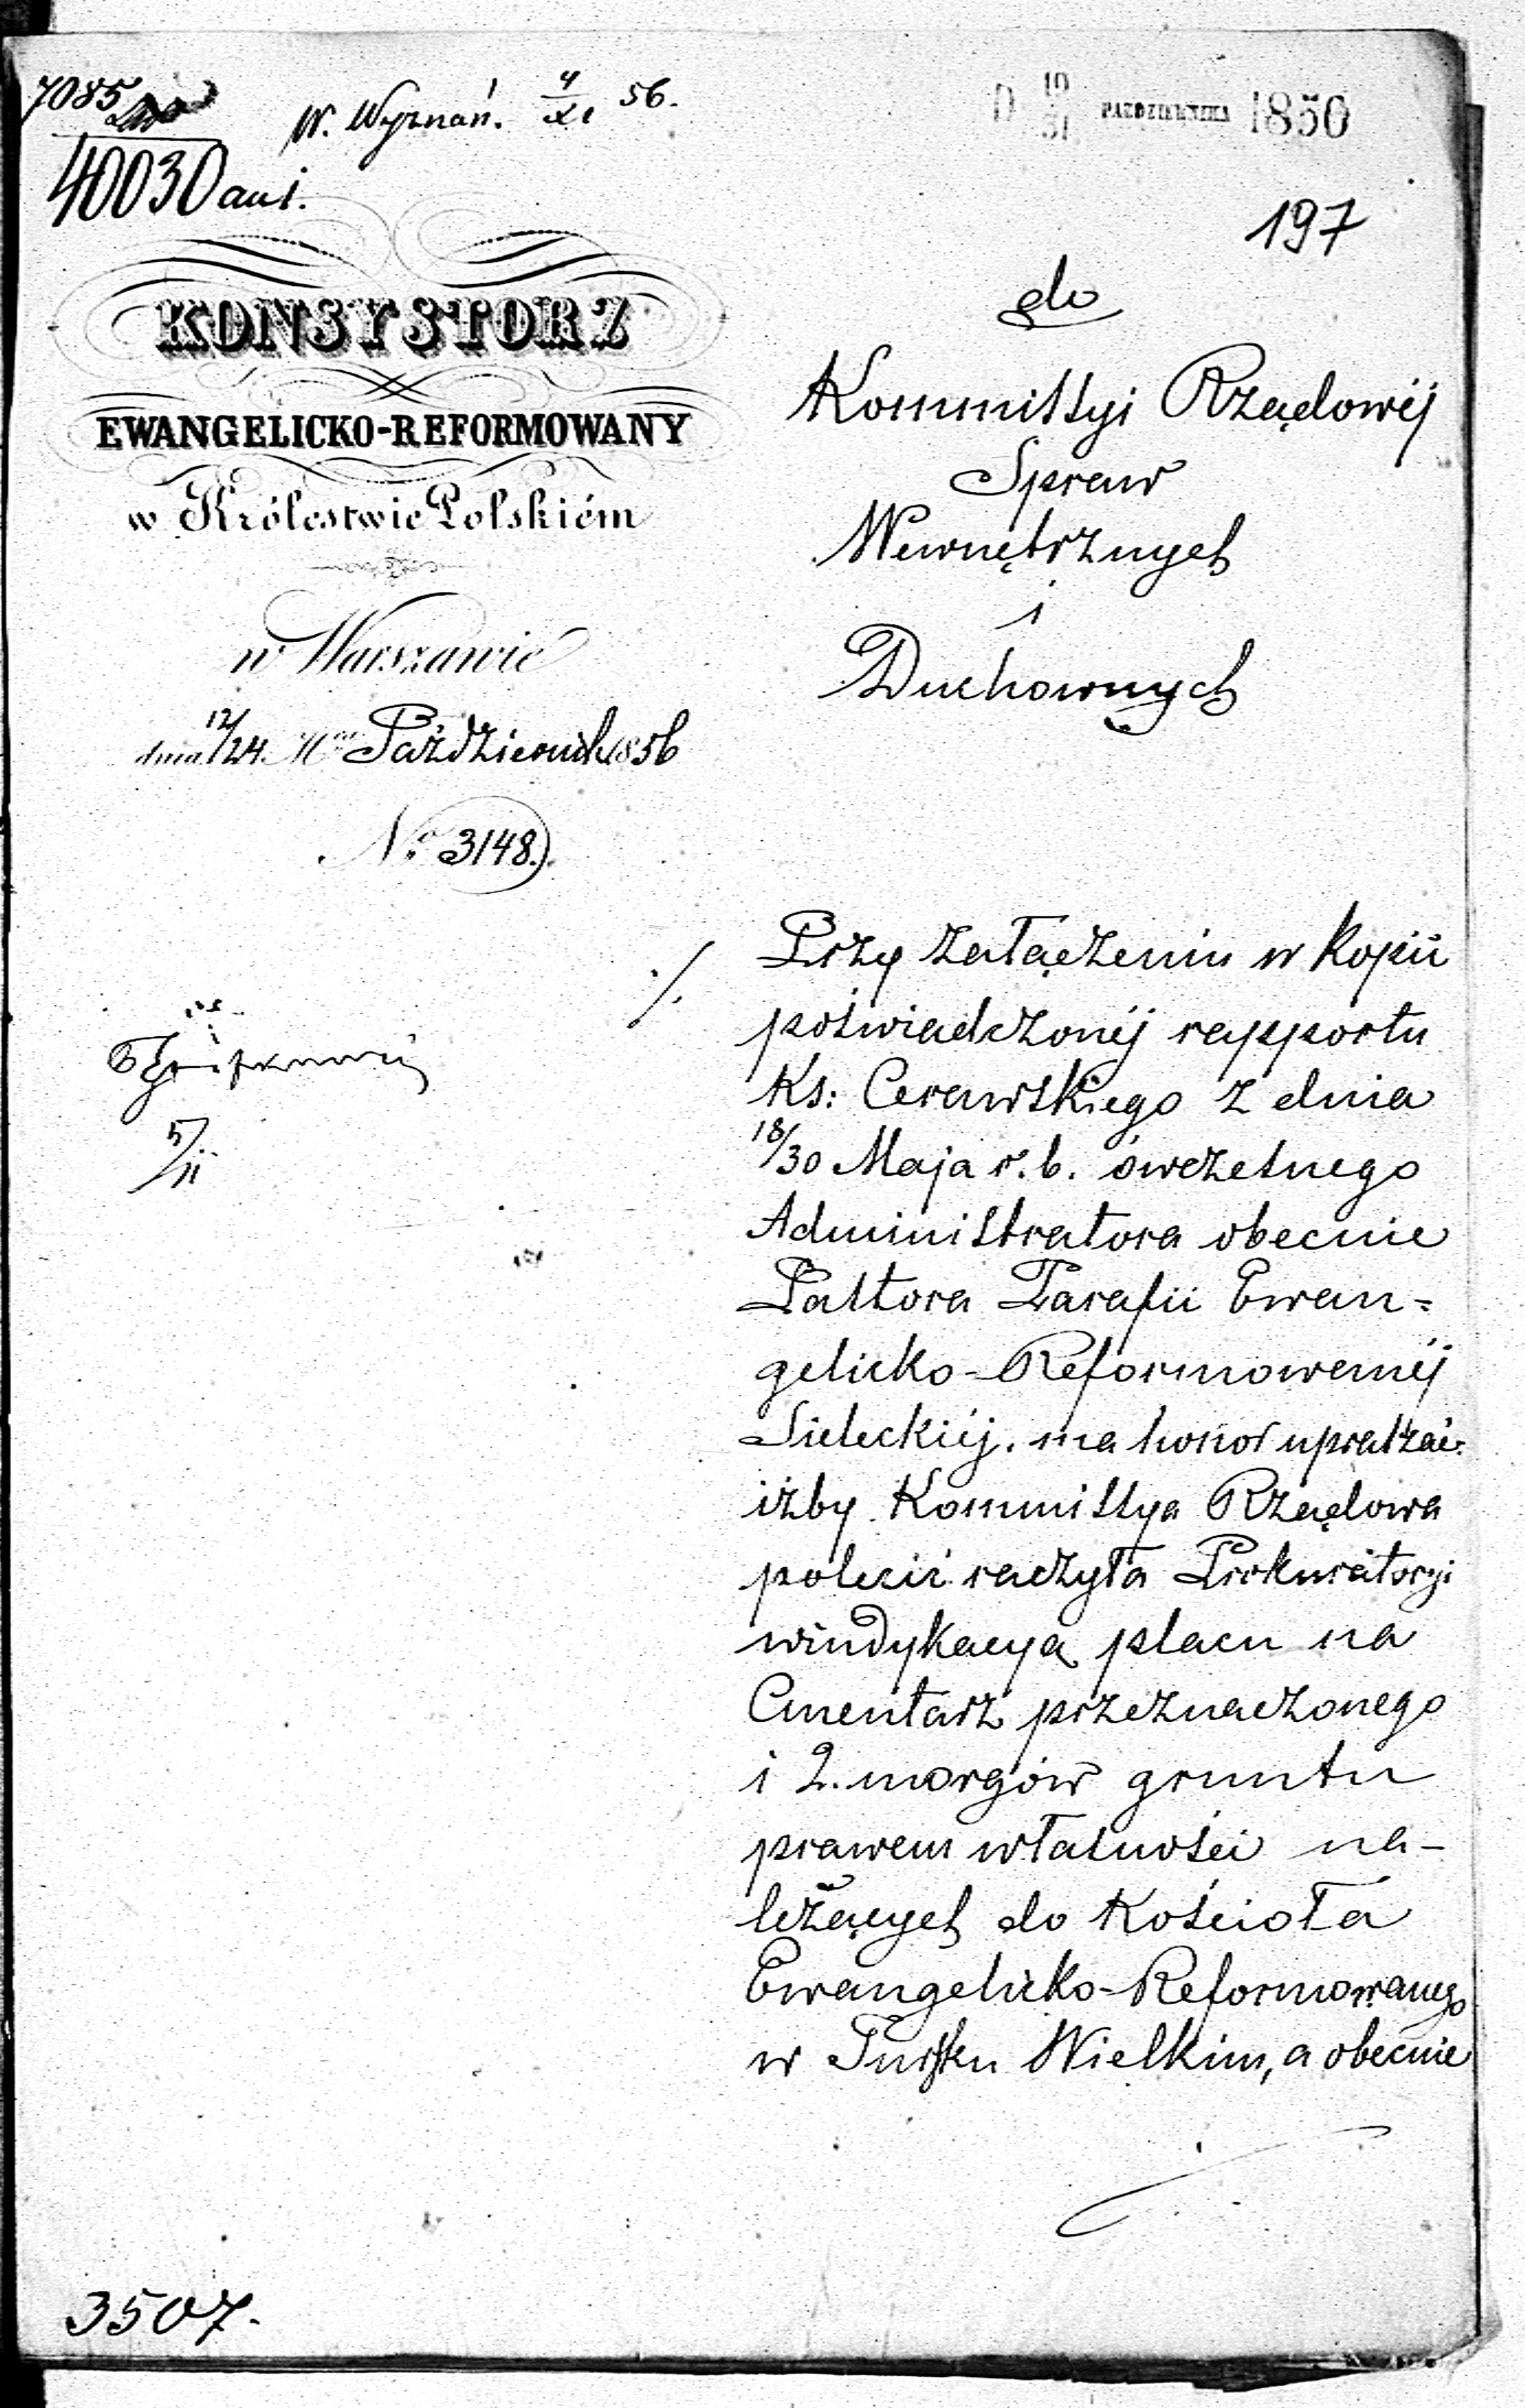 7085
40030 aus.
W. Wyznań. 4/XI 56.
D 19/31 PAZDZIERNIKA 1850
197
KONSYSTORZ
EWANGELICKO-REFORMOWANY
w Królestwie Polskiém
w Warszawie
dnia 12/24. Mca Październik 1856
No 3148.
do
Kommissyi Rządowéj
Spraw
Wewnętrznych
i
Duchownych
5/11
./. Przy załączeniu w Kopii
poświadczonéj rapportu
Ks: Cerawskiego z dnia
18/30 Maja r. b. ówczesnego
Administratora obecnie
Pastora Parafii Ewan=
gelicko-Reformowanéj
Sieleckiéj. ma honor upraszać.
iżby Kommissya Rządowa
polecić raczyła Prokuratoryi
windykacyą placu na
Cmentarz przeznaczonego
i 2. morgów gruntu
prawem własności na-
leżących do Kościoła
Ewangelicko-Reformowanego
w Tursku Wielkim, a obecnie
3507.